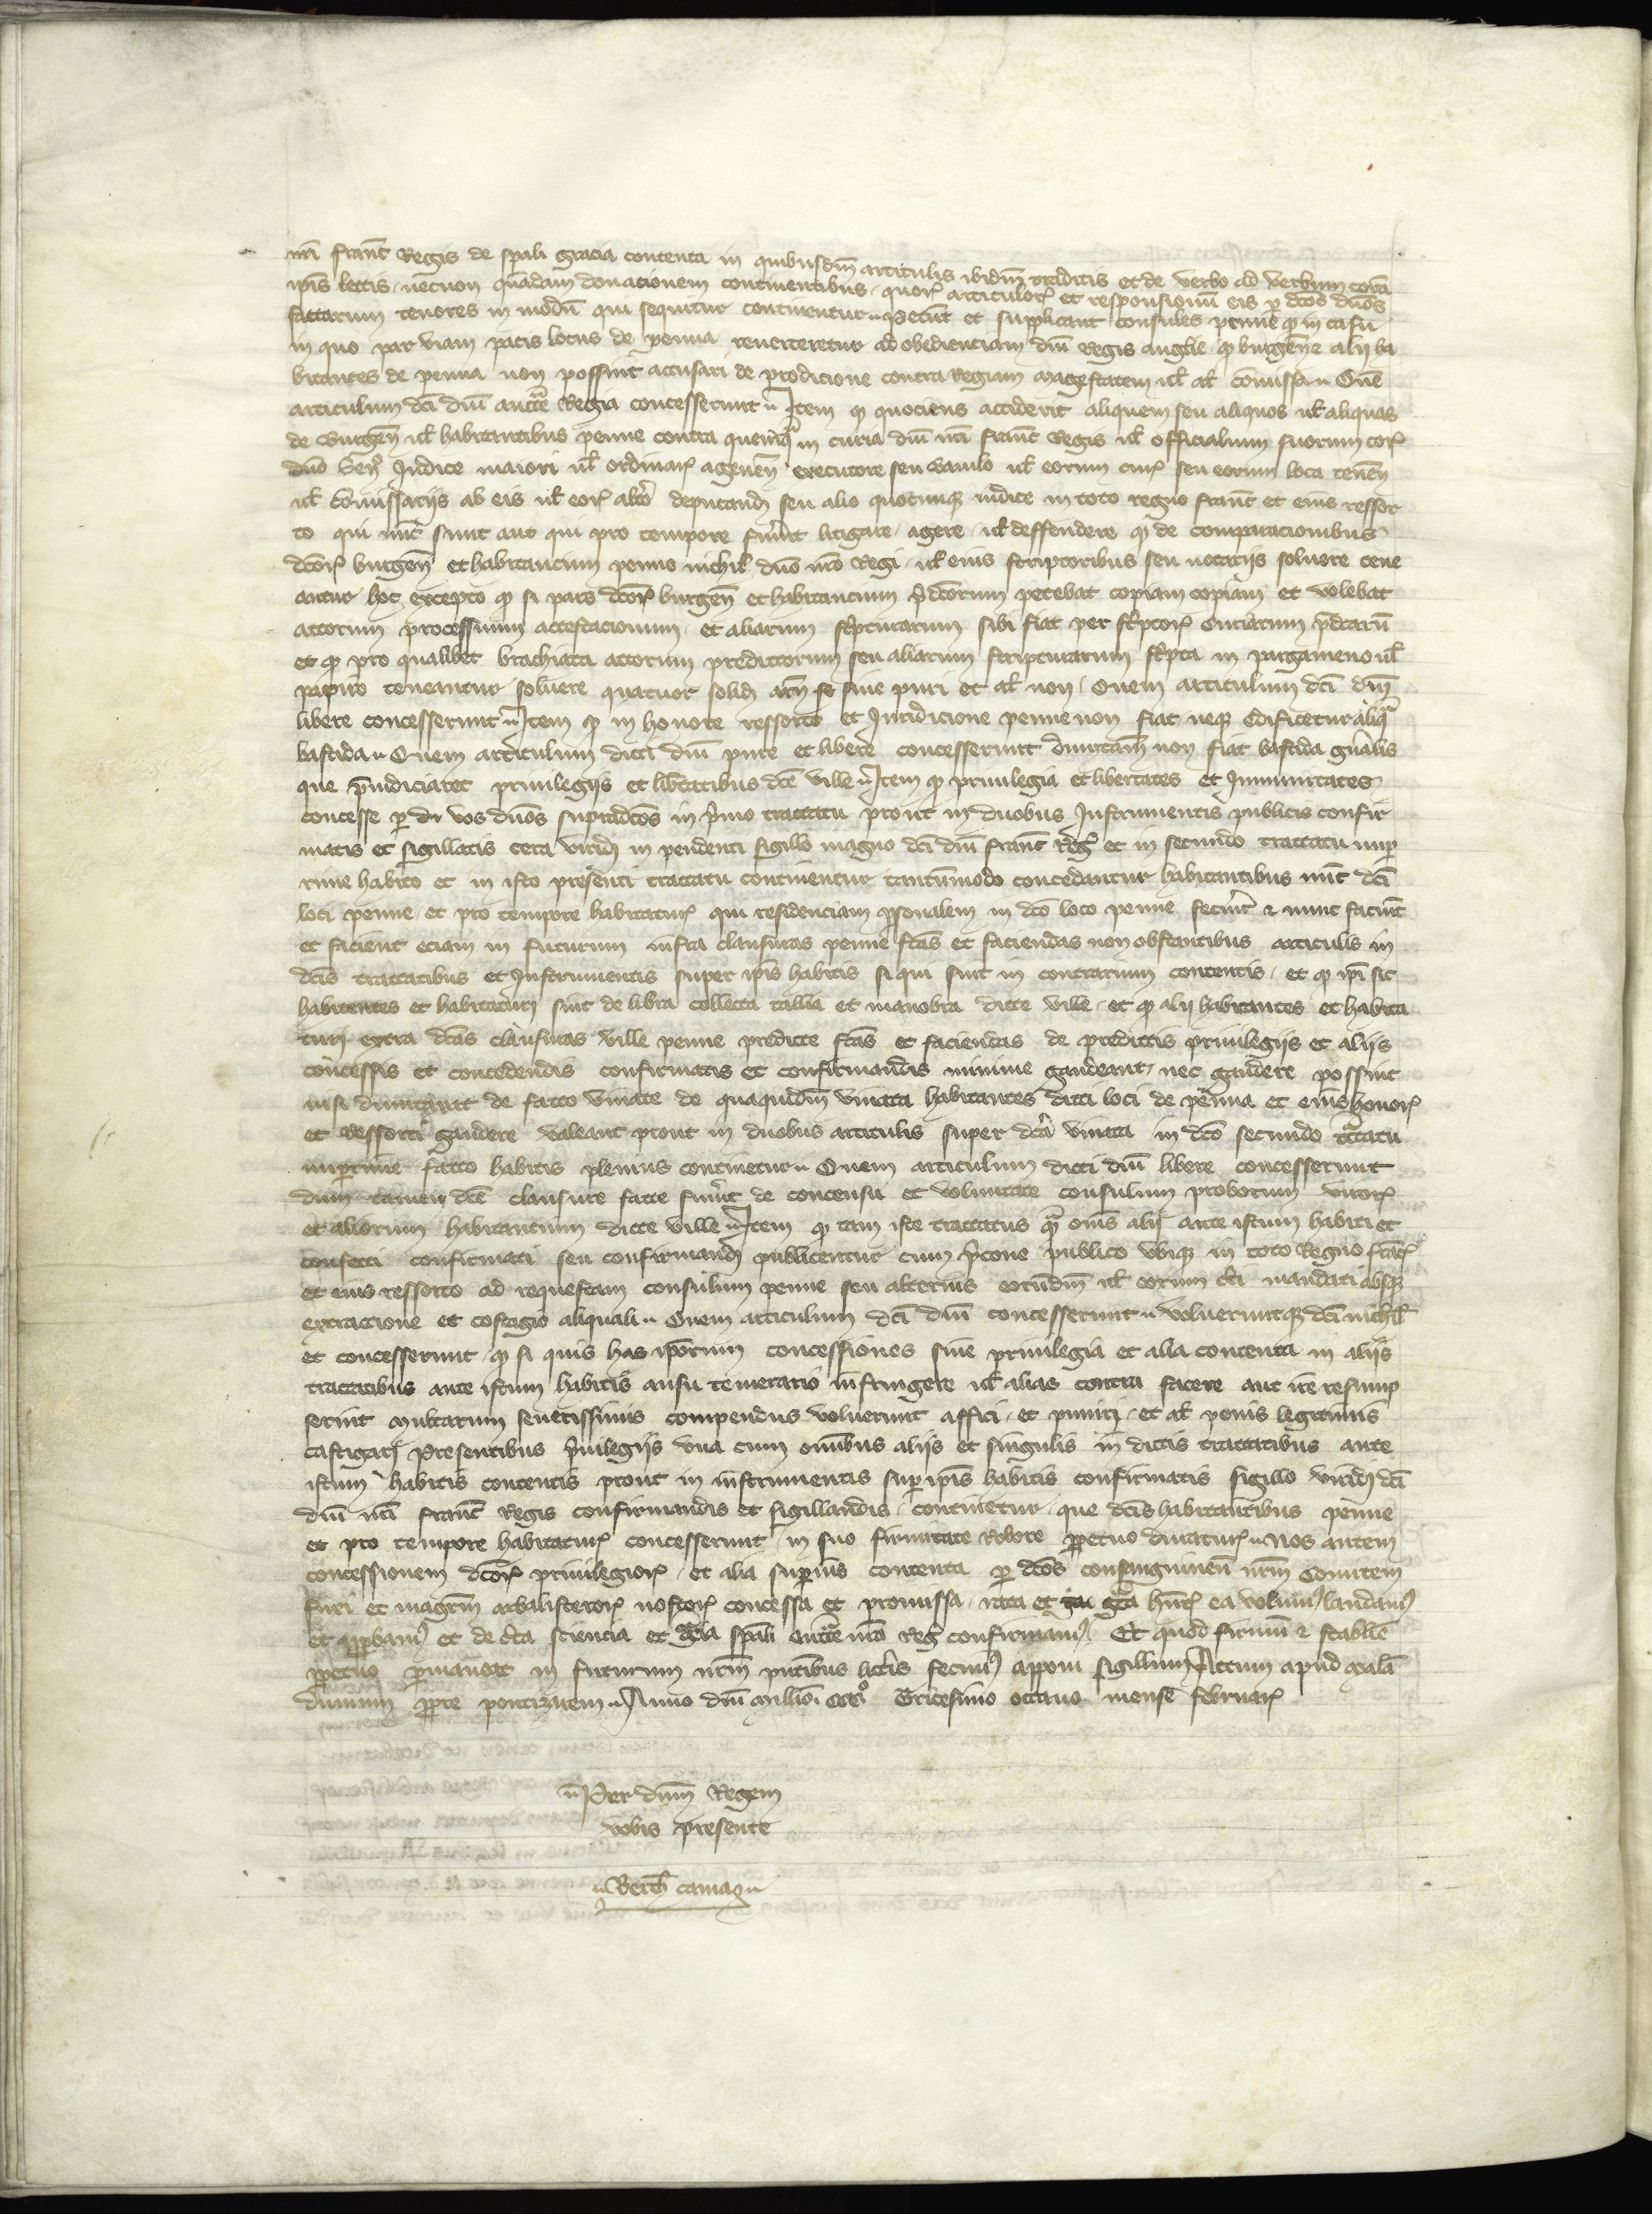 nri franc Regis de spali gracia contenta in quibusdm articulis ibidm traditis et de verbo ad verbum cora
ipis lectis necnon quadam donacionem continentibus quor articulor et responsionu eis p dcos dnos
factarum tenores in modu qui sequitur continentur Petunt et supplicant consules penne q in casu
in quo par viam pacis locus de penna reuerteretur ad obedienciam dni Regis anglie q burgen et alij ha
bitantes de penna non possint accusari de prodicione contra Regiam magestatem ul al comissa Quem
articulum dci dni aucte Regia concesserunt Item q quociens acciderit aliquem seu aliquos ul aliquas
de Burgen ul habitantibus penne contra quemq in curia dni nri franc Regis ul officialium suorum cor
dno Sen Judice maiori ul ordinar agenen executore seu baiulo ul eorum cur seu eorum loca tenen
ul comissarijs ab eis ul eor altero deputand seu alio quocunq iudice in toto regno franc et eius ressor
to qui nunc sunt aut qui pro tempore fuerint litigare agere ul deffendere q de comparacionibus
dcor burgen et habitancium penne nichil dno nro Regi ul eius scriptoribus seu notarijs soluere tene
antur hoc excepto q si pars dcor burgen et habitancium pdcorum petebat copiam copiam et volebat
actorum processuum attestacionum et aliarum scripturarum sibi fiat per scriptor curiarum pdcaru
et q pro qualibet brachiata actorum predictorum seu aliarum scripturarum scripta in pargameno ul
papiro teneantur soluere quatuor solid arn fo siue puri et al non Quem articulum dci dni
libere concesserunt Item q in honore ressorto et Juridicione penne non fiat neq edificetur aliq
bastida Quem articulum dicti dni pure et libere concesserunt dumtam non fiat bastida gnalis
que preiudiciaret priuilegijs et libertatibus dce ville Item q priuilegia et libertates et Jnmunitates
concesse p du vos dnos supradcos in primo tractatu prout in duobus Instrumentis publicis confir
matis et sigillatis cera virid in pendenti sigillo magno dci dni franc Reg et in secundo tractatu nup
rime habito et in isto presenti tractatu continentur tantummodo concedantur habitantibus nunc dci
loci penne et pro tempore habitatur qui residenciam personalem in dco loco penne fecerint et nunc faciunt
et facient eciam in futurum infra clausuras penne fcas et faciendas non obstantibus articulis in
dcis tractatibus et Instrumentis super ipis habitis si qui sint in contrarium contentis et q ipi sic
habitentes et habitaturi sint de libra collecta tallia et manobra dicte ville et q alij habitantes et habita
turi extra dcas clausuras ville penne predicte fcas et faciendas de predictis priuilegijs et alijs
concessis et concedendis confirmatis et confirmandis minime gaudeant nec gaudere possint
nisi dumtaxat de facto vinate de quaquidm vinata habitantes dicti loci de penna et eius honor
et ressorti gaudere valeant prout in duobus articulis super dca vinata in dco secundo tractatu
nuperrime facto habitis plenius continetur Quem articulum dicti dni libere concesserunt
dum tamen dce clausure facte fuerint de concensu et voluntate consulum proborum viror
et aliorum habitancium dicte ville Item q tam iste tractatus q omnis alij ante istum habiti et
confecti confirmati seu confirmand publicentur cum precone publico vbiq in toto Regno franc
et eius ressorto ad requestam consulum penne seu alterius eorundm ul eorum certi mandati absq
extractione et costagio aliquali Quem articulum dci dni concesserunt volueruntq dci nichil
et concesserunt q si quis has ipsorum concessiones siue priuilegia et alia contenta in alijs
tractatibus ante istum habitis ausu temerario infringere ul alias contra facere aut ire resump
serint mulctarum seuerissimis compendus voluerunt affici et puniri et al penis legitimis
castigari Presentibus priuilegijs vna cum omibus alijs et singulis in dictis tractatibus ante
istum habitis contentis prout in instrumentis sup ipis habitis confirmatis sigillo virid dci
dni nri franc Regis confirmandis et sigillandis continetur que dcis habitantibus penne
et pro tempore habitatur concesserunt in suo firmitate Robore ppetuo duratur Nos autem
concessionem dcor priuilegior et alia superius contenta p dcos consanguineu nrm Comitem
fuxi et magrm arbalisteror nostror concessa et promissa rata et gra hntes ea volum laudam
et approbam et de certa sciencia et gracia spali aucte nra Reg confirmam Et quod firmu et stabile
ppetuo permaneat in futurum nrm pntibus litteris fecim apponi sigillum Actum apud mala
dumum ppe pontizaem Anno dni millio cccmo Tricesimo octauo mense februar
Per dnm Regem
vobis presente
Berth camag